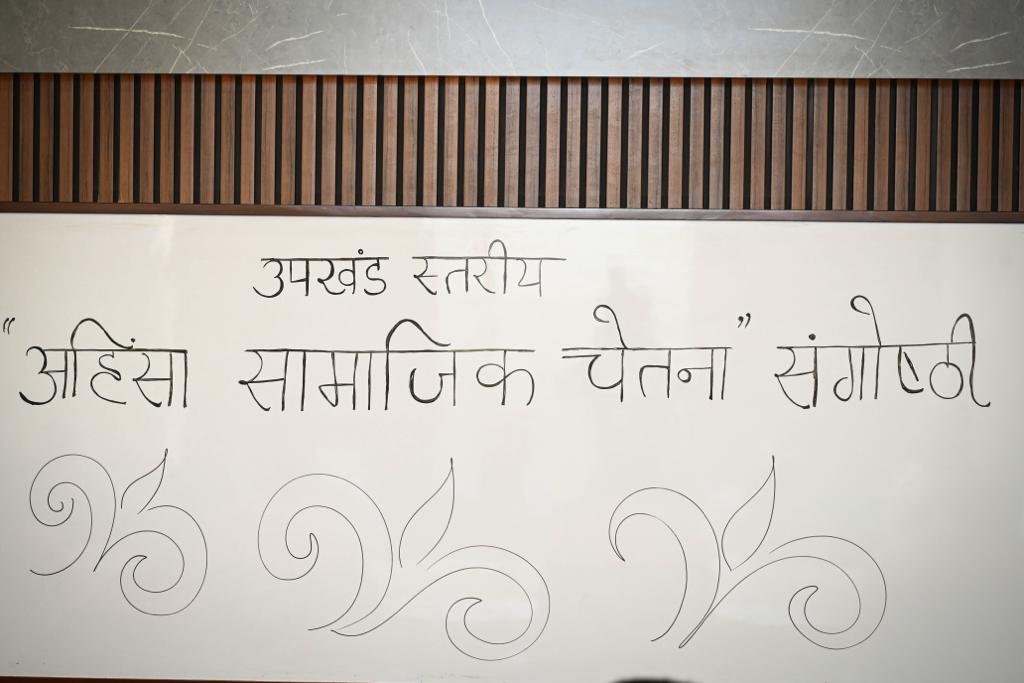 उपखंड स्तरीय
“अहिंसा सामाजिक चेतना” संगोष्ठी